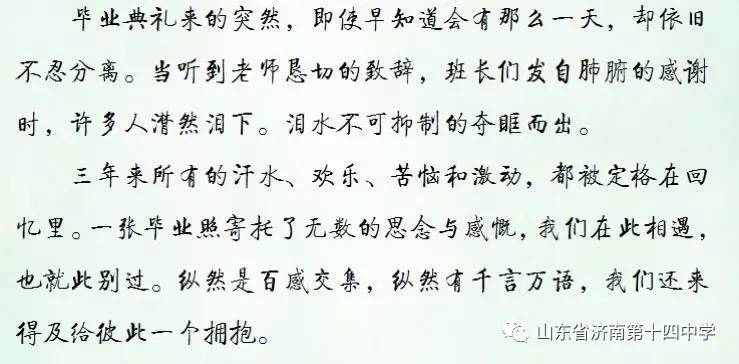 毕业典礼来的突然，即使早知道会有那么一天，却依旧
不忍分离。当听到老师恳切的致辞，班长们发自肺腑的感谢
时，许多人潸然泪下。泪水不可抑制的夺眶而出。
三年来所有的汗水、欢乐、苦恼和激动，都被定格在回
忆里。一张毕业照寄托了无数的思念与感慨，我们在此相遇，
也就此别过。纵然是百感交集，纵然有千言万语，我们还来
得及给彼此一个拥抱。
山东省济南第十四中学